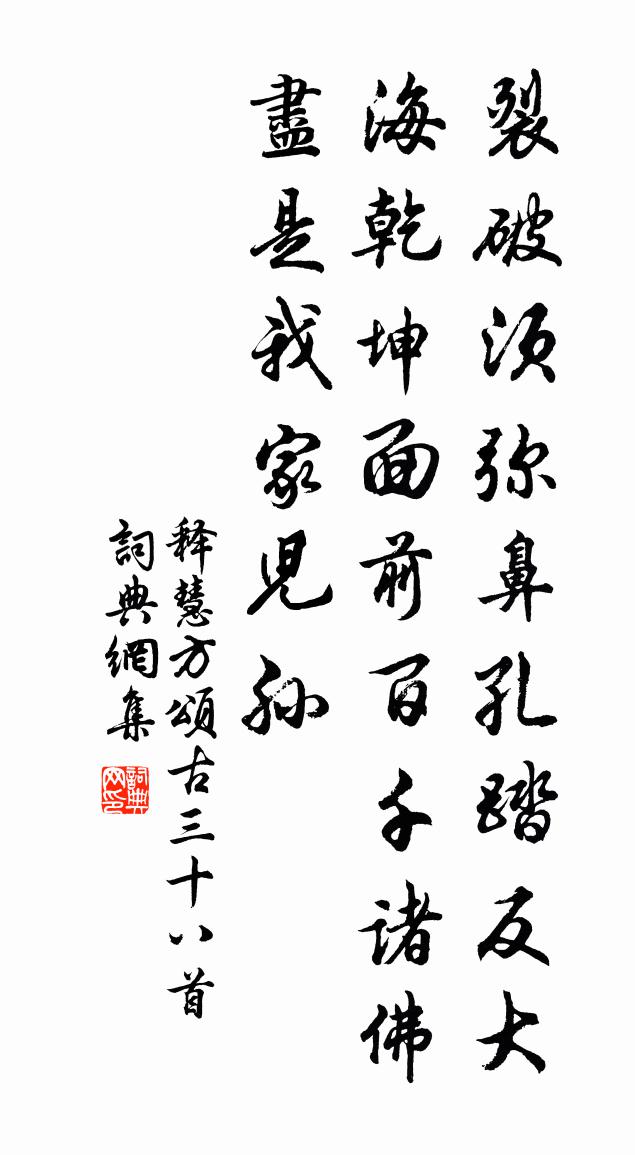 裂破须弥鼻孔踏反大
海乾坤面前百千诸佛
盡是我家児孙
释慧方頌古三十八首
詞典網集
詞典网印